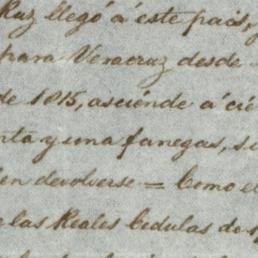 Ruz llegó á este pais,
para Veracruz desde
de 1815, asciénde á cié
nta y una fanegas, s
en devolverse = Como e
e las Reales Cedulas de